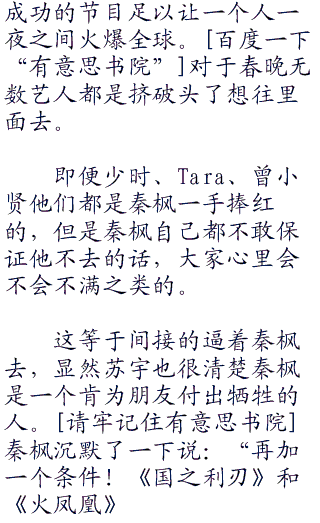 成功的节目足以让一个人一
夜之间火爆全球。[百度一下
“有意思书院”]对于春晚无
数艺人都是挤破头了想往里
面去。
即便少时、Tara、曾小
贤他们都是秦枫一手捧红
的，但是秦枫自己都不敢保
证他不去的话，大家心里会
不会不满之类的。
这等于间接的逼着秦枫
去，显然苏宇也很清楚秦枫
是一个肯为朋友付出牺牲的
人。[请牢记住有意思书院]
秦枫沉默了一下说：“再加
一个条件！《国之利刃》和
《火凤凰》